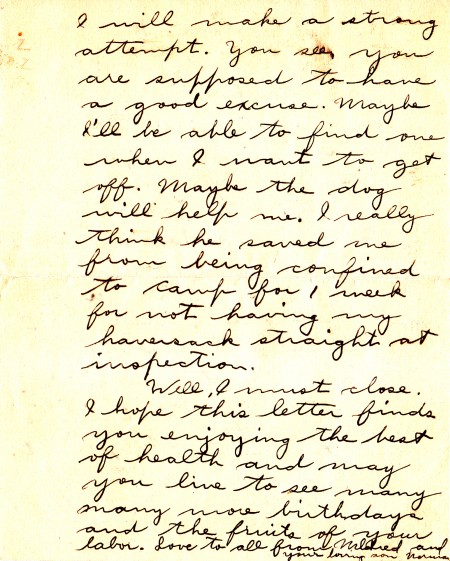 I will make a strong
attempt. You see, you
are supposed to have
a good excuse. Maybe
I'll be able to find one
when I want to get
off. Maybe the dog
will help me. I really
think he saved me
from being confined
to camp for 1 week
for not having my
haversack straight at
inspection.
Well, I must close.
I hope this letter finds
you enjoying the best
of health and may
you live to see many
many more birthdays
and the fruits of your
labor. Love to all from Mildred and
your loving son Norman